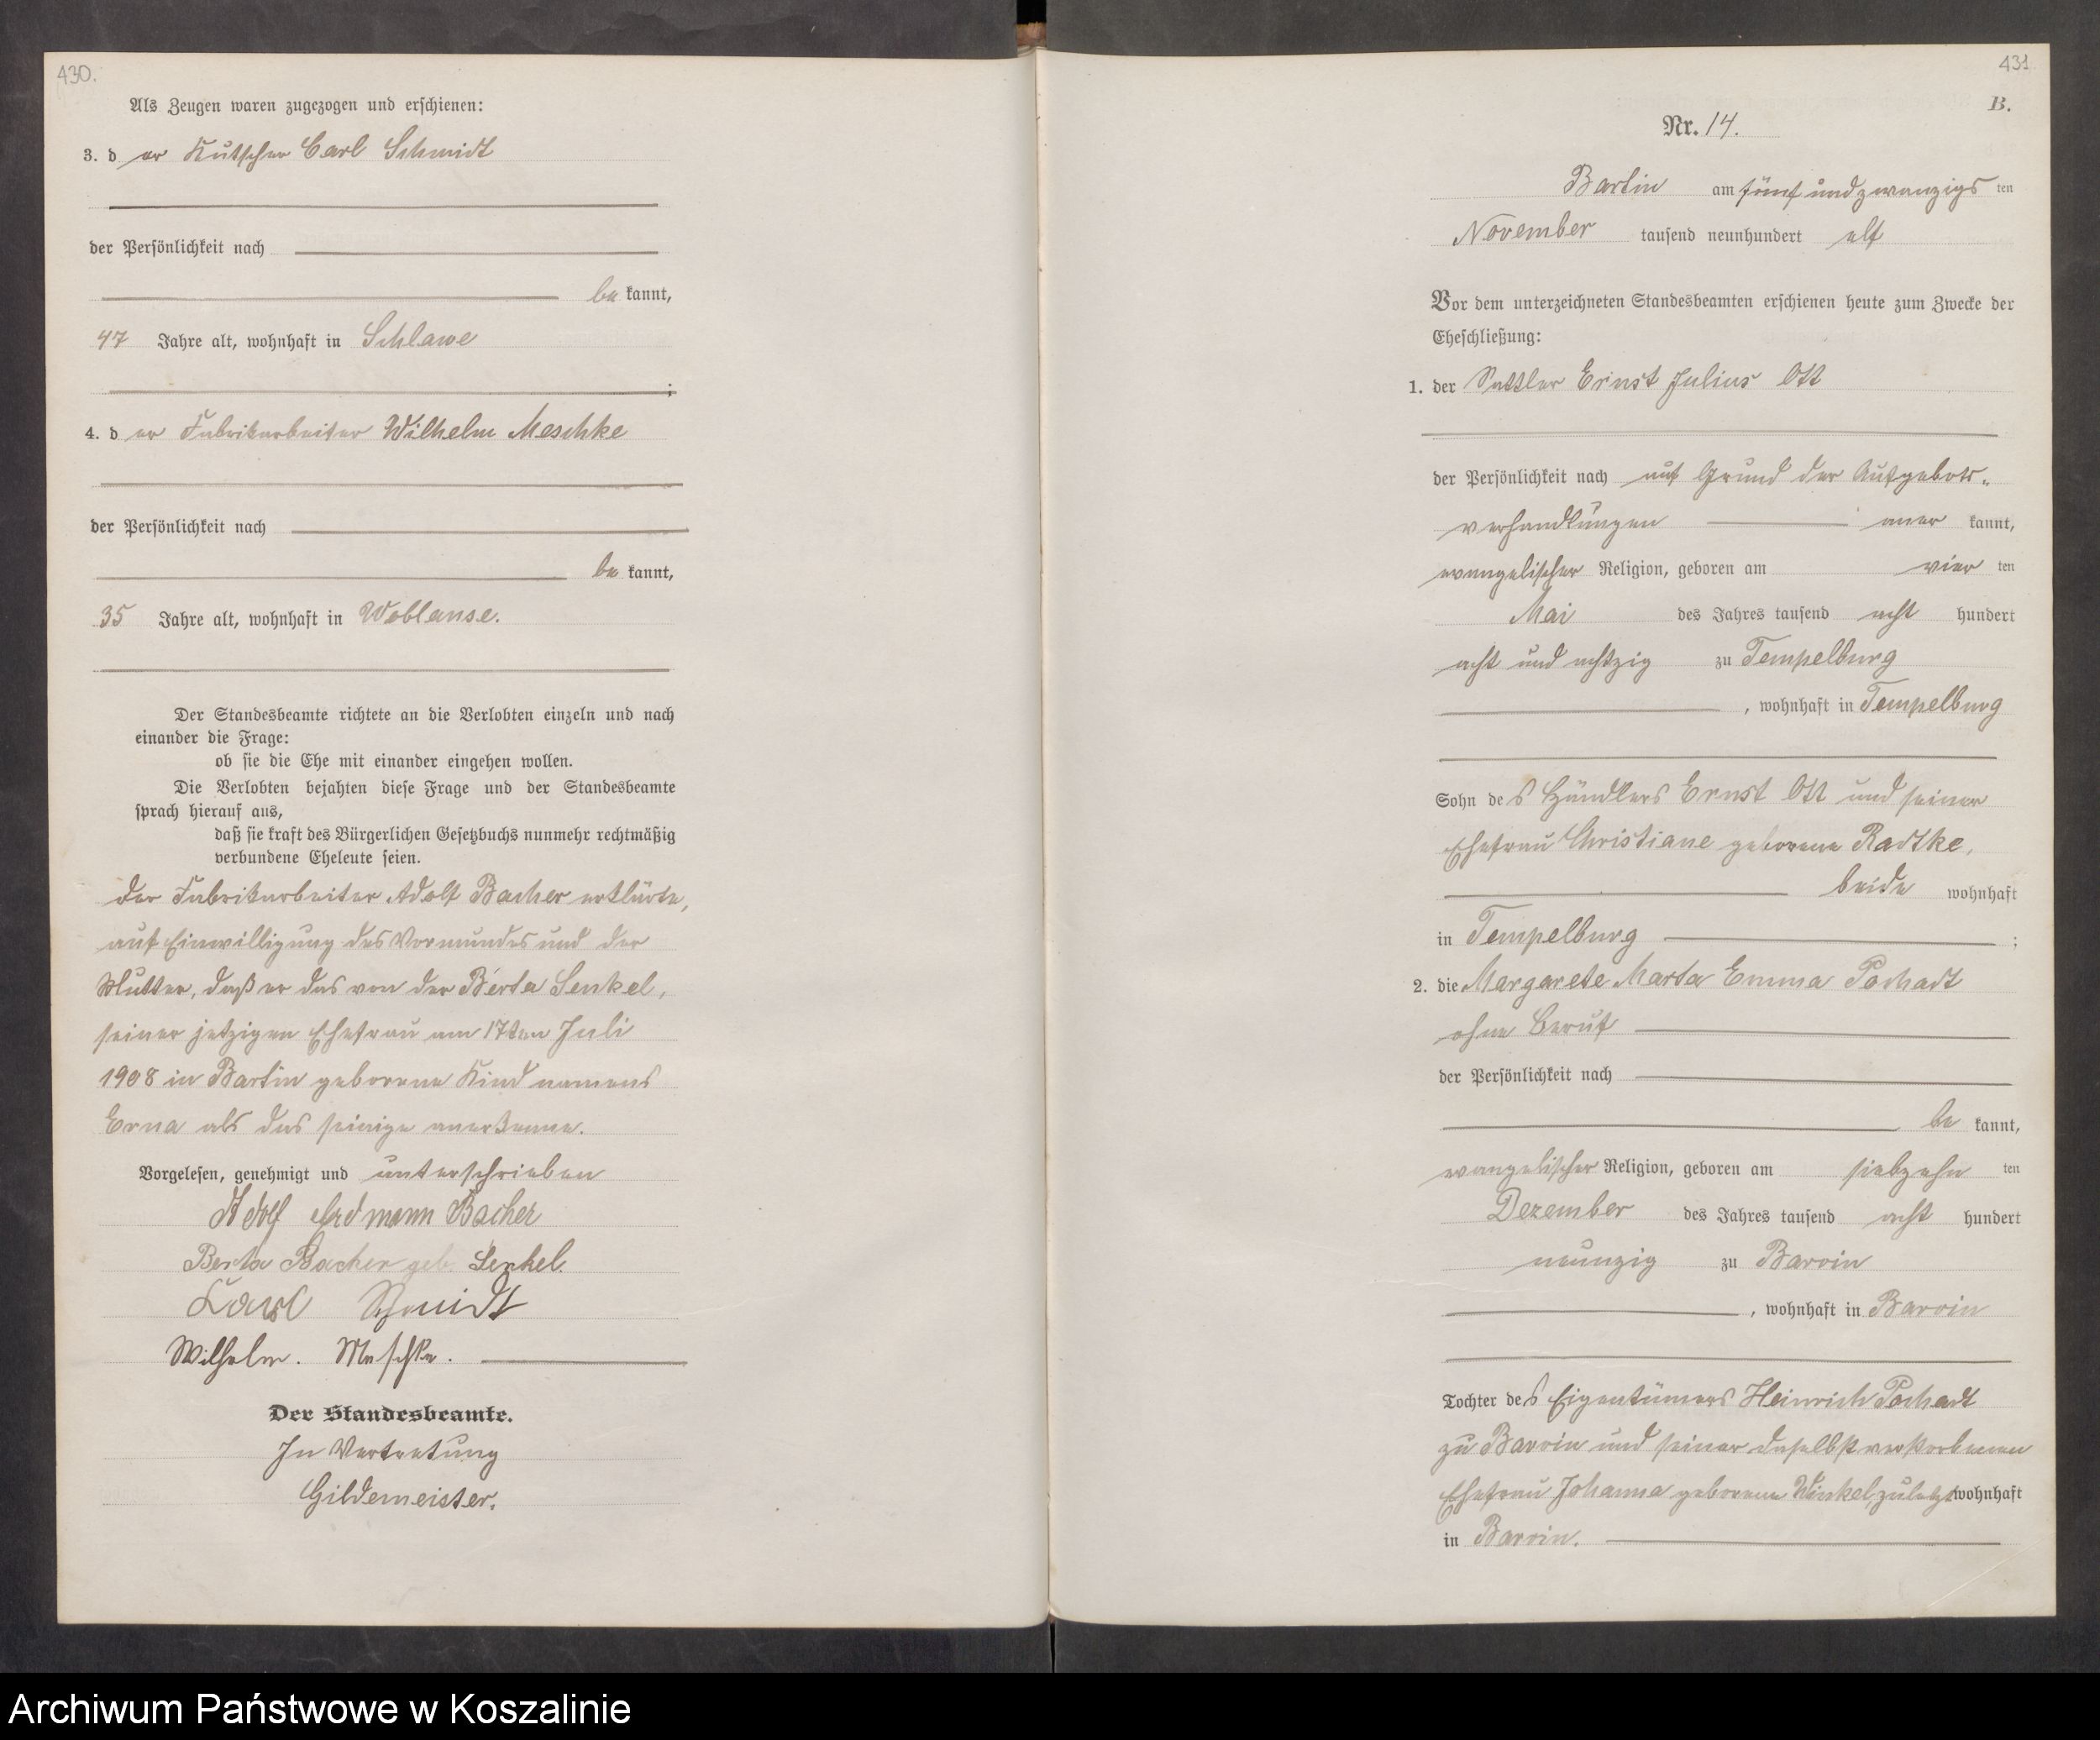 430.
Als Zeugen waren zugezogen und erschienen:
3. der Kutscher Carl Schmidt
der Persönlichkeit nach
bekannt,
47 Jahre alt, wohnhaft in Schlawe
;
4. der Fabrikarbeiter Wilhelm Meschke
der Persönlichkeit nach
bekannt,
35 Jahre alt, wohnhaft in Woblanse.
Der Standesbeamte richtete an die Verlobten einzeln und nach
einander die Frage:
ob sie die Ehe mit einander eingehen wollen.
Die Verlobten bejahten diese Frage und der Standesbeamte
sprach hierauf aus,
daß sie kraft des Bürgerlichen Gesetzbuchs nunmehr rechtmäßig
verbundene Eheleute seien.
Der Fabrikarbeiter Adolf Bacher erklärte,
auf Einwilligung des Vormundes und der
Mutter, daß er das von der Berta Lenkel,
seiner jetzigen Ehefrau am 17ten Juli
1908 in Bartin geborene Kind namens
Erna als das seinige anerkenne.
Vorgelesen, genehmigt und unterschrieben
Adolf Erdmann Bacher
Berta Bacher geb. Lenkel.
Carl Schmidt
Wilhelm. Meschke.
Der Standesbeamte.
In Vertretung
Gildemeister.
431
B.
Nr. 14.
Bartin am fünf und zwanzigsten
November tausend neunhundert elf
Vor dem unterzeichneten Standesbeamten erschienen heute zum Zwecke der
Eheschließung:
1. der Sattler Ernst Julius Ott
der Persönlichkeit nach auf Grund der Aufgebots-
verhandlungen anerkannt,
evangelischer Religion, geboren am vierten
Mai des Jahres tausend acht hundert
acht und achtzig zu Tempelburg
, wohnhaft in Tempelburg
Sohn des Händlers Ernst Ott und seiner
Ehefrau Christiane geborene Radtke,
beide wohnhaft
in Tempelburg ;
2. die Margarete Marta Emma Pochadt
ohne Beruf
der Persönlichkeit nach
bekannt,
evangelischer Religion, geboren am siebzehnten
Dezember des Jahres tausend acht hundert
neunzig zu Barvin
, wohnhaft in Barvin
Tochter des Eigentümers Heinrich Pochadt
zu Barvin und seiner daselbst verstorbenen
Ehefrau Johanna geborene Winkel, zuletzt wohnhaft
in Barvin.
Archiwum Państwowe w Koszalinie